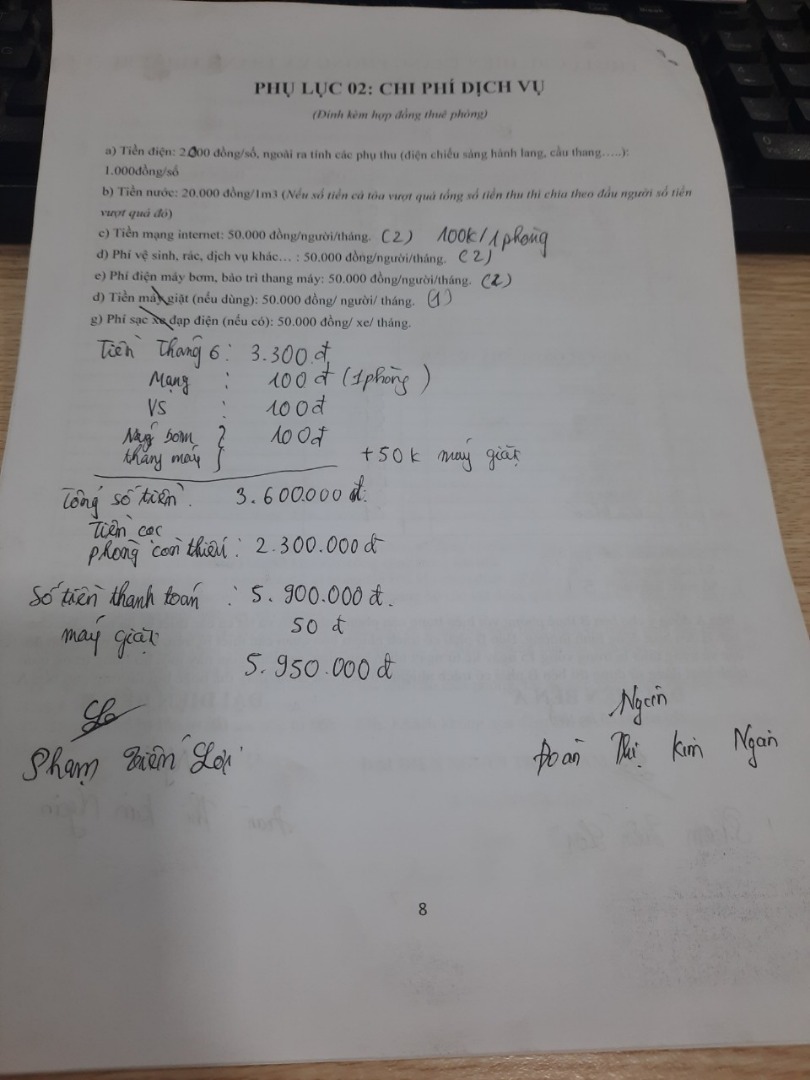 PHỤ LỤC 02: CHI PHÍ DỊCH VỤ
(Đính kèm hợp đồng thuê phòng)
a) Tiền điện: 2000 đồng/số, ngoài ra tính các phụ thu (điện chiếu sáng hành lang, cầu thang…..):
1.000đồng/số
b) Tiền nước: 20.000 đồng/1m3 (Nếu số tiền cả tòa vượt quá tổng số tiền thu thì chia theo đầu người số tiền
vượt quá đó)
c) Tiền mạng internet: 50.000 đồng/người/tháng. (2) 100k/1 phòng
d) Phí vệ sinh, rác, dịch vụ khác… : 50.000 đồng/người/tháng. (2)
e) Phí điện máy bơm, bảo trì thang máy: 50.000 đồng/người/tháng. (2)
d) Tiền máy giặt (nếu dùng): 50.000 đồng/ người/ tháng. (1)
g) Phí sạc xe đạp điện (nếu có): 50.000 đồng/ xe/ tháng.
Tiền tháng 6 : 3.300.đ
Mạng : 100đ (1 phòng)
VS : 100đ
Máy bơm } 100đ
thang máy } +50k máy giặt
Tổng số tiền. 3.600.000 đ.
Tiền cọc
phòng còn thiếu : 2.300.000 đ
Số tiền thanh toán : 5.900.000 đ.
máy giặt 50 đ
5.950.000 đ
Phạm Lợi
Ngân
Đoàn Thị Kim Ngân
8